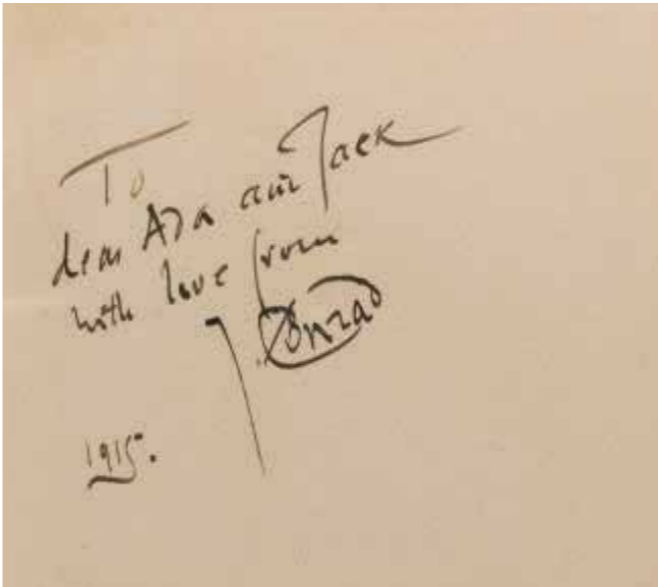 To
dear Ada and Jack
with love from
J. Conrad
1915.